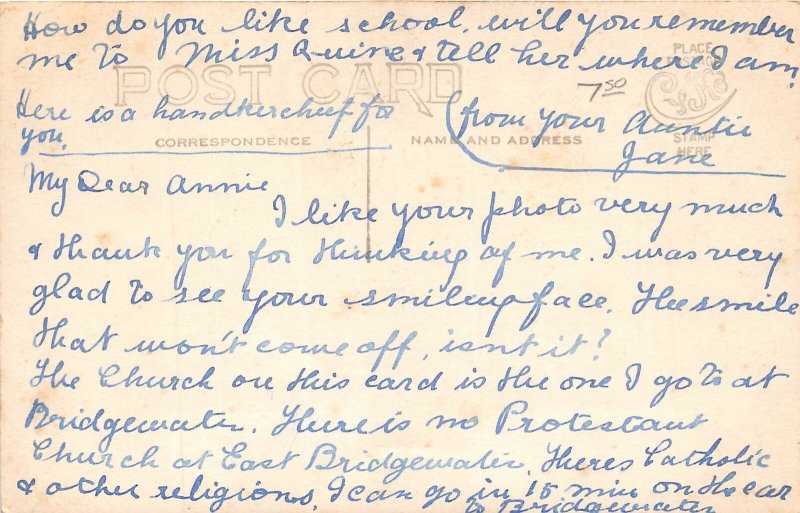 How do you like school. will you remember
me to Miss Quine & tell her where I am.
PLACE
POSTAGE
STAMP
HERE
POST CARD
7 50
Here is a handkercheif for
you.
(from your Auntie
Jane
CORRESPONDENCE
NAME AND ADDRESS
My Dear Annie
I like your photo very much
& thank you for thinking of me. I was very
glad to see your smileing face. The smile
that won't come off, isnt it?
The Church on this card is the one I go to at
Bridgewater. There is no Protestant
Church at East Bridgewater. Theres Catholic
& other religions. I can go in 15 min on the car
to Bridgewater